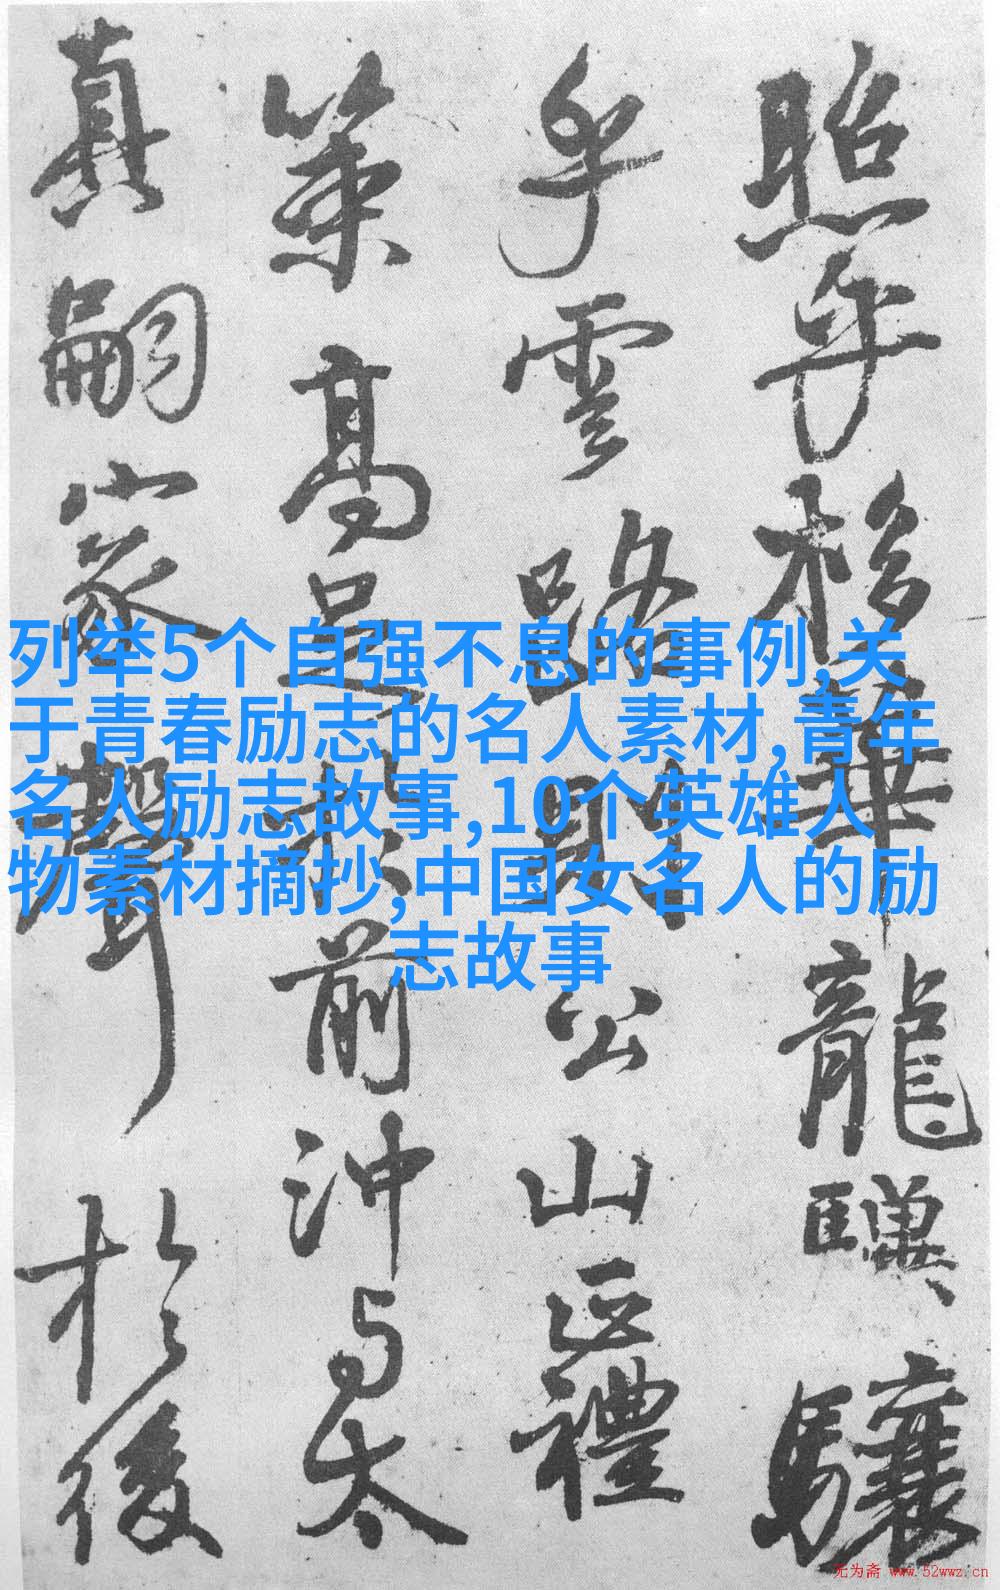 照乎栘華龍驥驤
乎雲路則公山正禮
策高足於前沖与太
真嗣家聲於後
列举5个自强不息的事例,关
于青春励志的名人素材,青年
名人励志故事,10个英雄人
物素材摘抄,中国女名人的励
志故事
无为斋 www.52wwz.cn